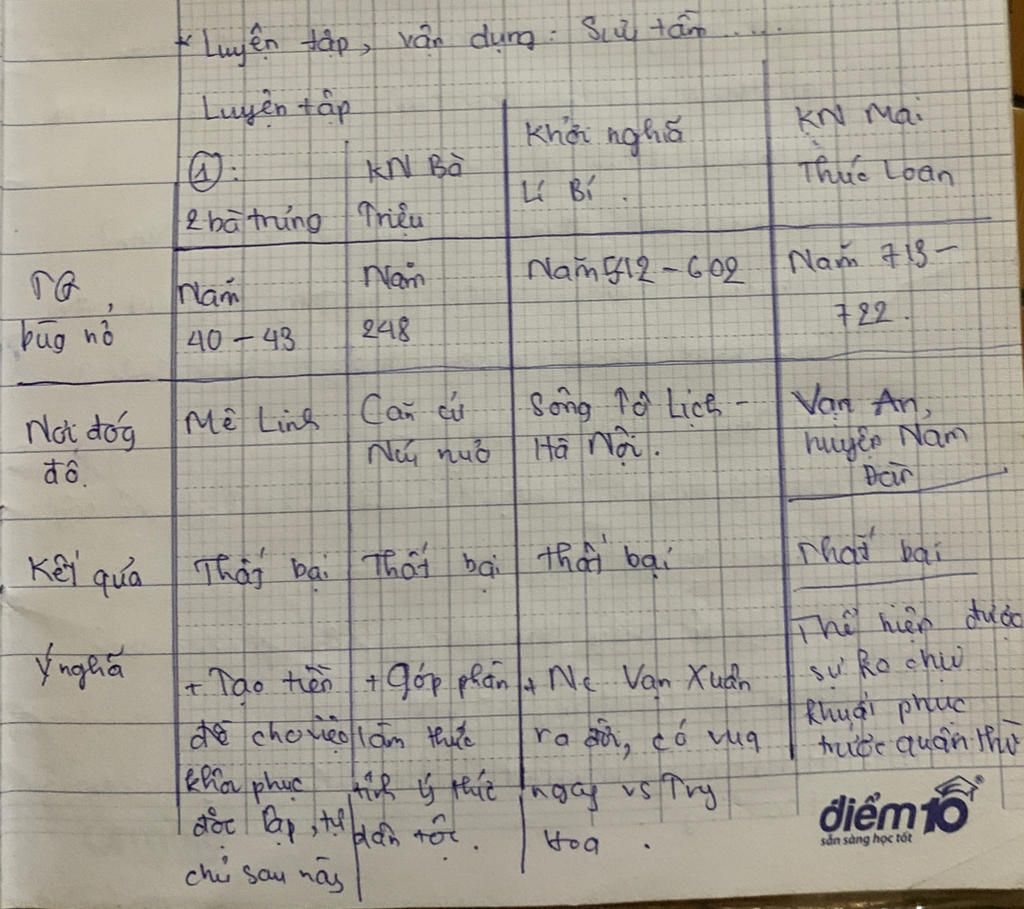 * Luyện tập, vận dụng: Sưu tầm.....
Luyện tập
①:
2 bà trưng
KN Bà
Triệu
Khởi nghĩa
Lí Bí.
KN Mai
Thúc Loan
TG
bùg nổ
Năm
40 - 43
Năm
248
Năm 542 - 602
Năm 713 -
722.
Nơi đóg
đô.
Mê Linh
Căn cứ
Núi nưở
Sông Tô Lịch -
Hà Nội.
Vạn An,
huyện Nam
Đàn
Kết quả
Thất bại
Thất bại
thất bại
Thất bại
Ý nghĩa
+ Tạo tiền
đề cho việc
khôi phục
độc lập, tự
chủ sau này
+ Góp phần
làm thức
tỉnh ý thức
dân tộc.
+ Nc Vạn Xuân
ra đời, có vua
ngag vs Trg
Hoa.
Thể hiện được
sự ko chịu
khuất phục
trước quân thù
điểm 10
sẵn sàng học tốt